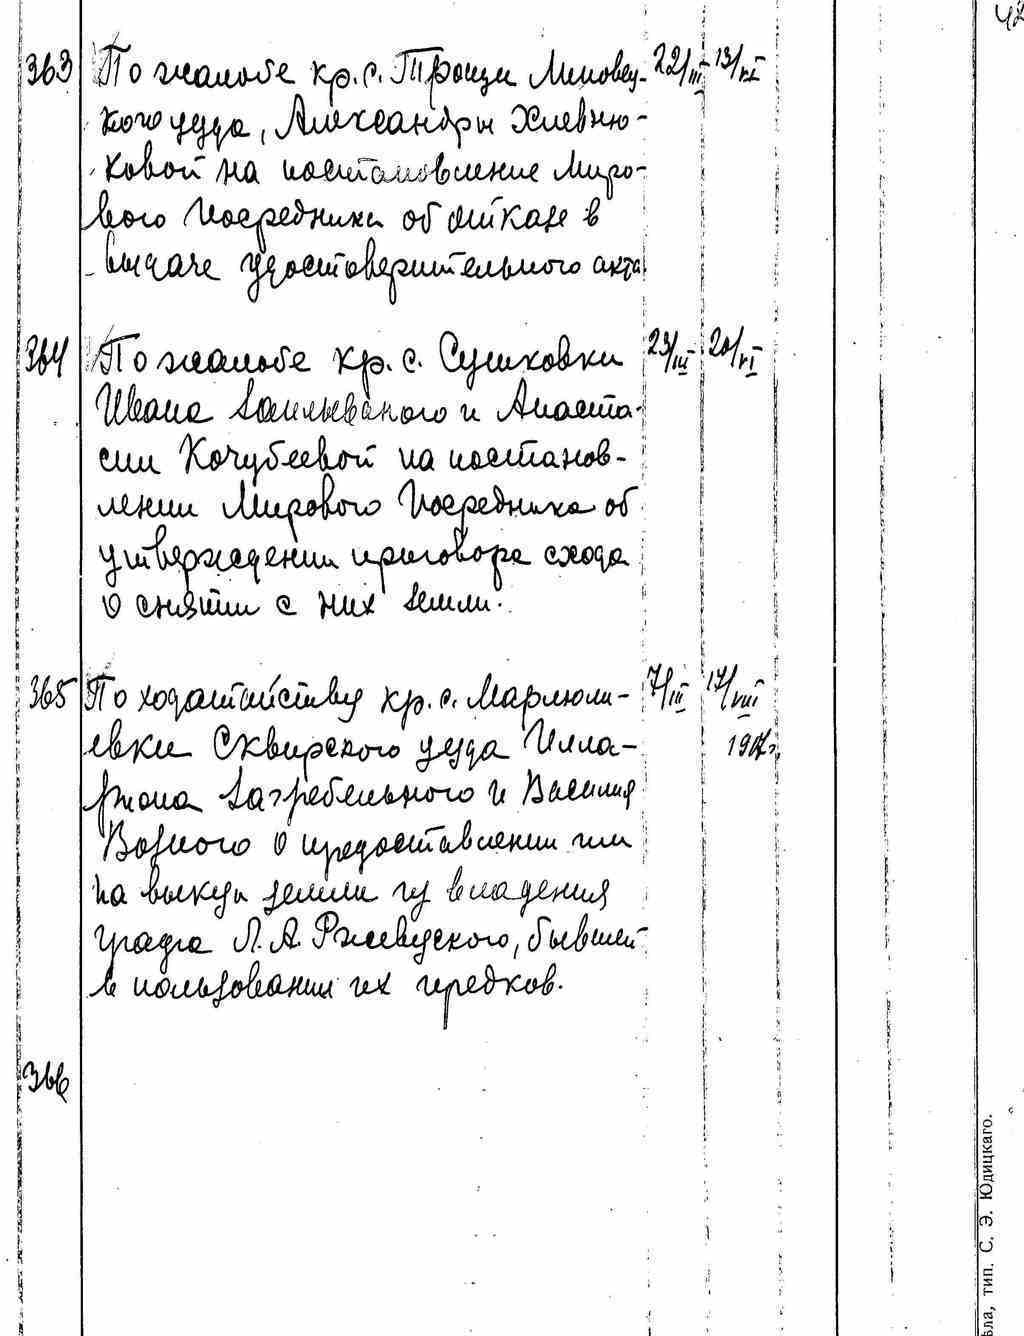 42
363 По жалобе кр. с. Трощи Липовец- 22/III 13/VI
кого уезда, Александры Хлевню-
ковой на постановление Миро-
вого Посредника об отказе в
выдаче удостоверительного акта
364 По жалобе кр. с. Сушковки 23/III 20/VI
Ивана и Анаста-
сии Кочубеевой на постанов-
лении Мирового Посредника об
утверждении приговора схода
о снятии с них земли.
365 По ходатайству кр. с. Мармоли- 7/III 17/VIII
евки Сквирского уезда Илла-
риона Загребельного и Василия
Возного о предоставлении им
на выкуп земли из владения
графа Л. А. Ржевуского, бывшей
в пользовании их предков.
366
ѣла, тип. С. Э. Юдицкаго.